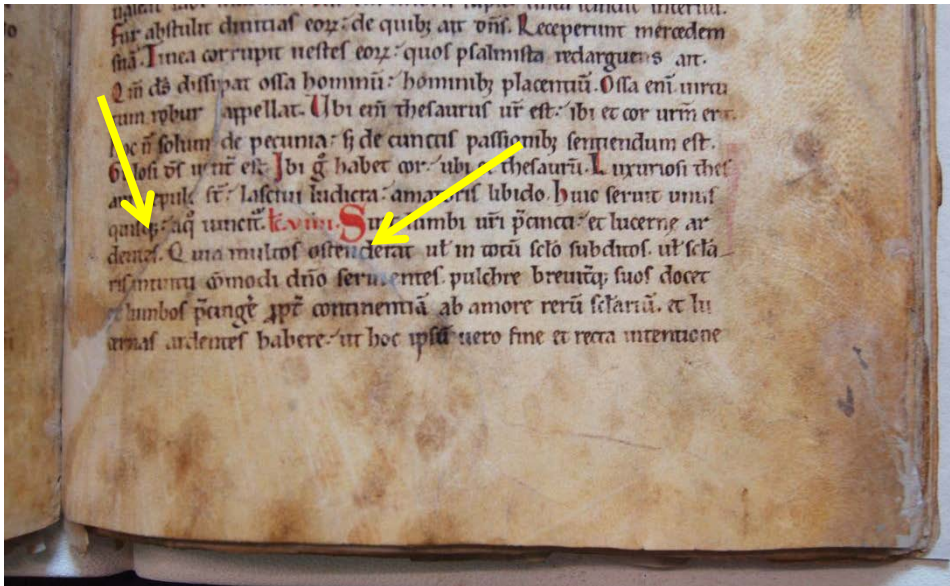 Fur abstulit diuitias eoꝝ: de quibꝫ ait dn̄s. Receperunt mercedem
suā. Tinea corrupit uestes eoꝝ: quos psalmista redarguens ait.
Qm̄ ds̄ dissipat ossa hominū: hominibꝫ placentiū. Ossa enī uirtu
tum robur appellat. Ubi enī thesaurus ur̄ est: ibi et cor urm̄
hoc n̄ solum de pecunia: sꝫ de cunctis passionibꝫ sentiendum est.
Gulosi ds̄ est. Ibi gͦ habet cor: ubi et thesaurū. Luxuriosi thes
epule st̄: Lasciui ludicra: amatoris libido. Huic seruit unus
quisqꝫ: a qͦ uincit᷑. Sint lumbi uri p̄cincti: et lucerne ar
dentes. Quia multos ostenderat ul̄ in totū sclo subditos. ul̄
cōmodi dn̄o seruientes. pulchre breuitqꝫ suos docet
et lumbos p̄cinge᷑ ꝓpt̄ continentiā ab amore rerū sclariū. et lu
cernas ardentes habere: ut hoc ipsū uero fine et recta intentione